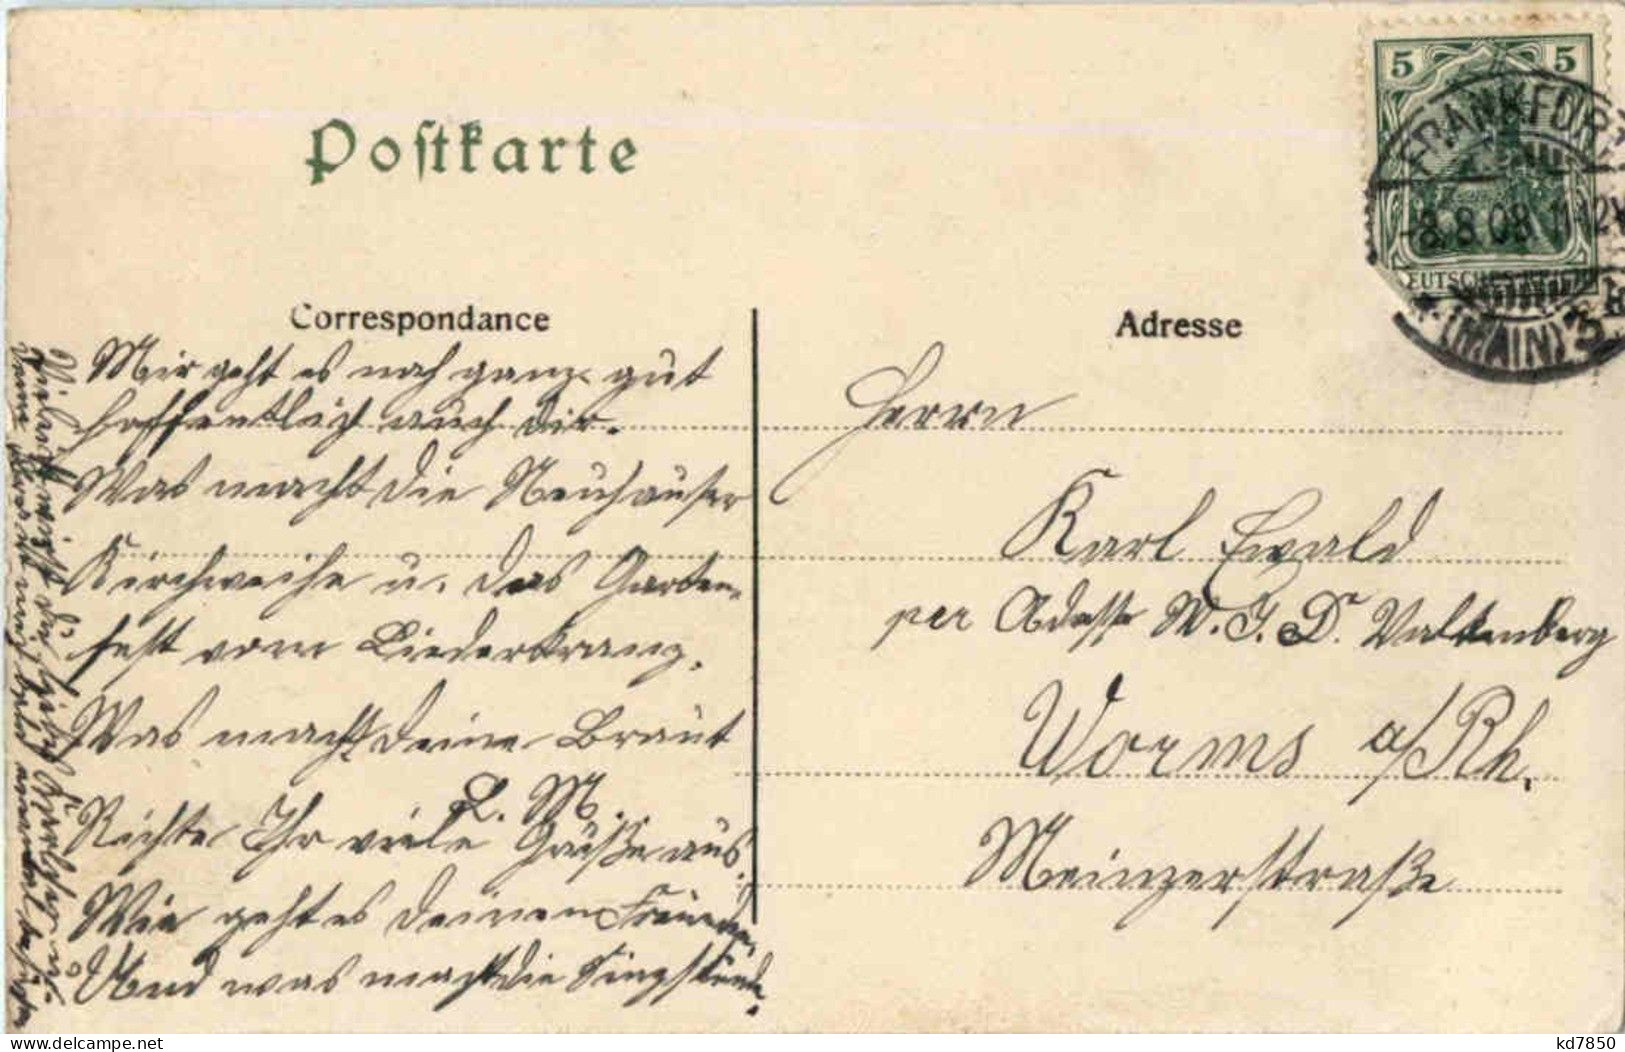 Postkarte
5 5
FRANKFURT
-8.8.08.11-12V
(MAIN) 3
DEUTSCHES REICH
Correspondance
Adresse
Mir geht es noch ganz gut
hoffentlich auch dir.
Was macht die Neuhauser
Kirchweihe u. das Garten-
fest vom Liederkranz.
Was macht deine Braut
L. M.
Richte Ihr viele Grüße aus.
Wie geht es deinen Freunden
Und was macht die Singstunde.
Herrn
Karl Ewald
per Adresse W. J. D. Valkenberg
Worms a/Rh.
Meinzerstraße
kd7850